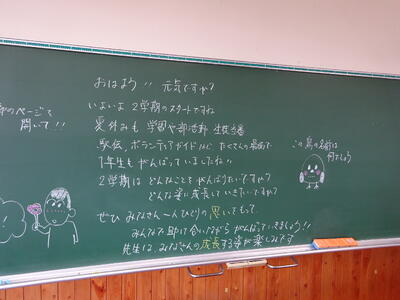 おはよう!! 元気ですか?
いよいよ2学期のスタートですね
夏休みも 学習や部活動 生徒会
駅伝、ボランティアガイドなど、たくさんの場面で
1年生もがんばっていましたね!!
2学期は どんなことをがんばりたいですか?
どんな姿に成長していきたいですか?
ぜひ みなさん一人ひとりの思いをもって
みんなで助け合いながら がんばっていきましょう!!
先生は、みなさんの成長する姿が楽しみです
のページを
開いて!!
この鳥の名前は
何でしょう